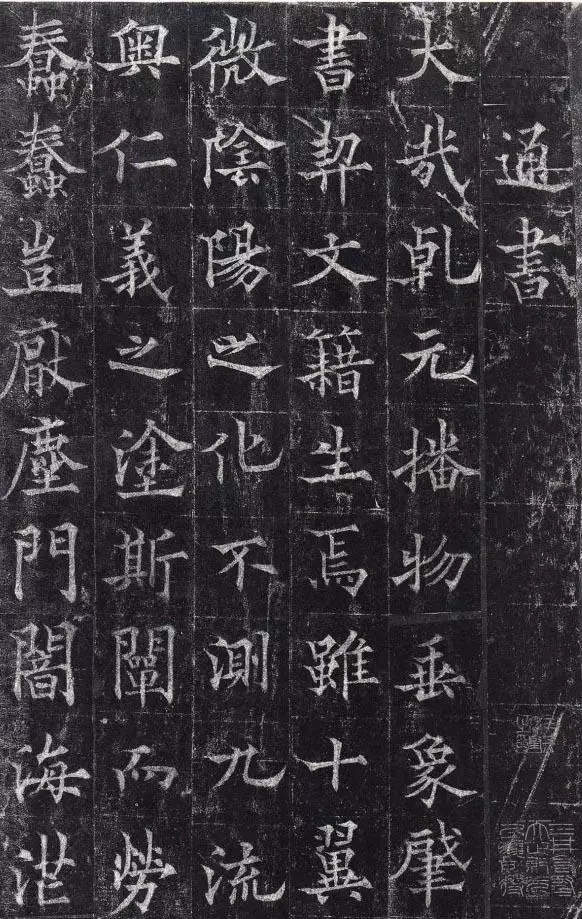 通書
大哉乹元播物垂象肇
書契文籍生焉雖十翼
微陰陽之化不測九流
奥仁義之塗斯闡而勞
蠢蠢豈厭塵門闇海茫